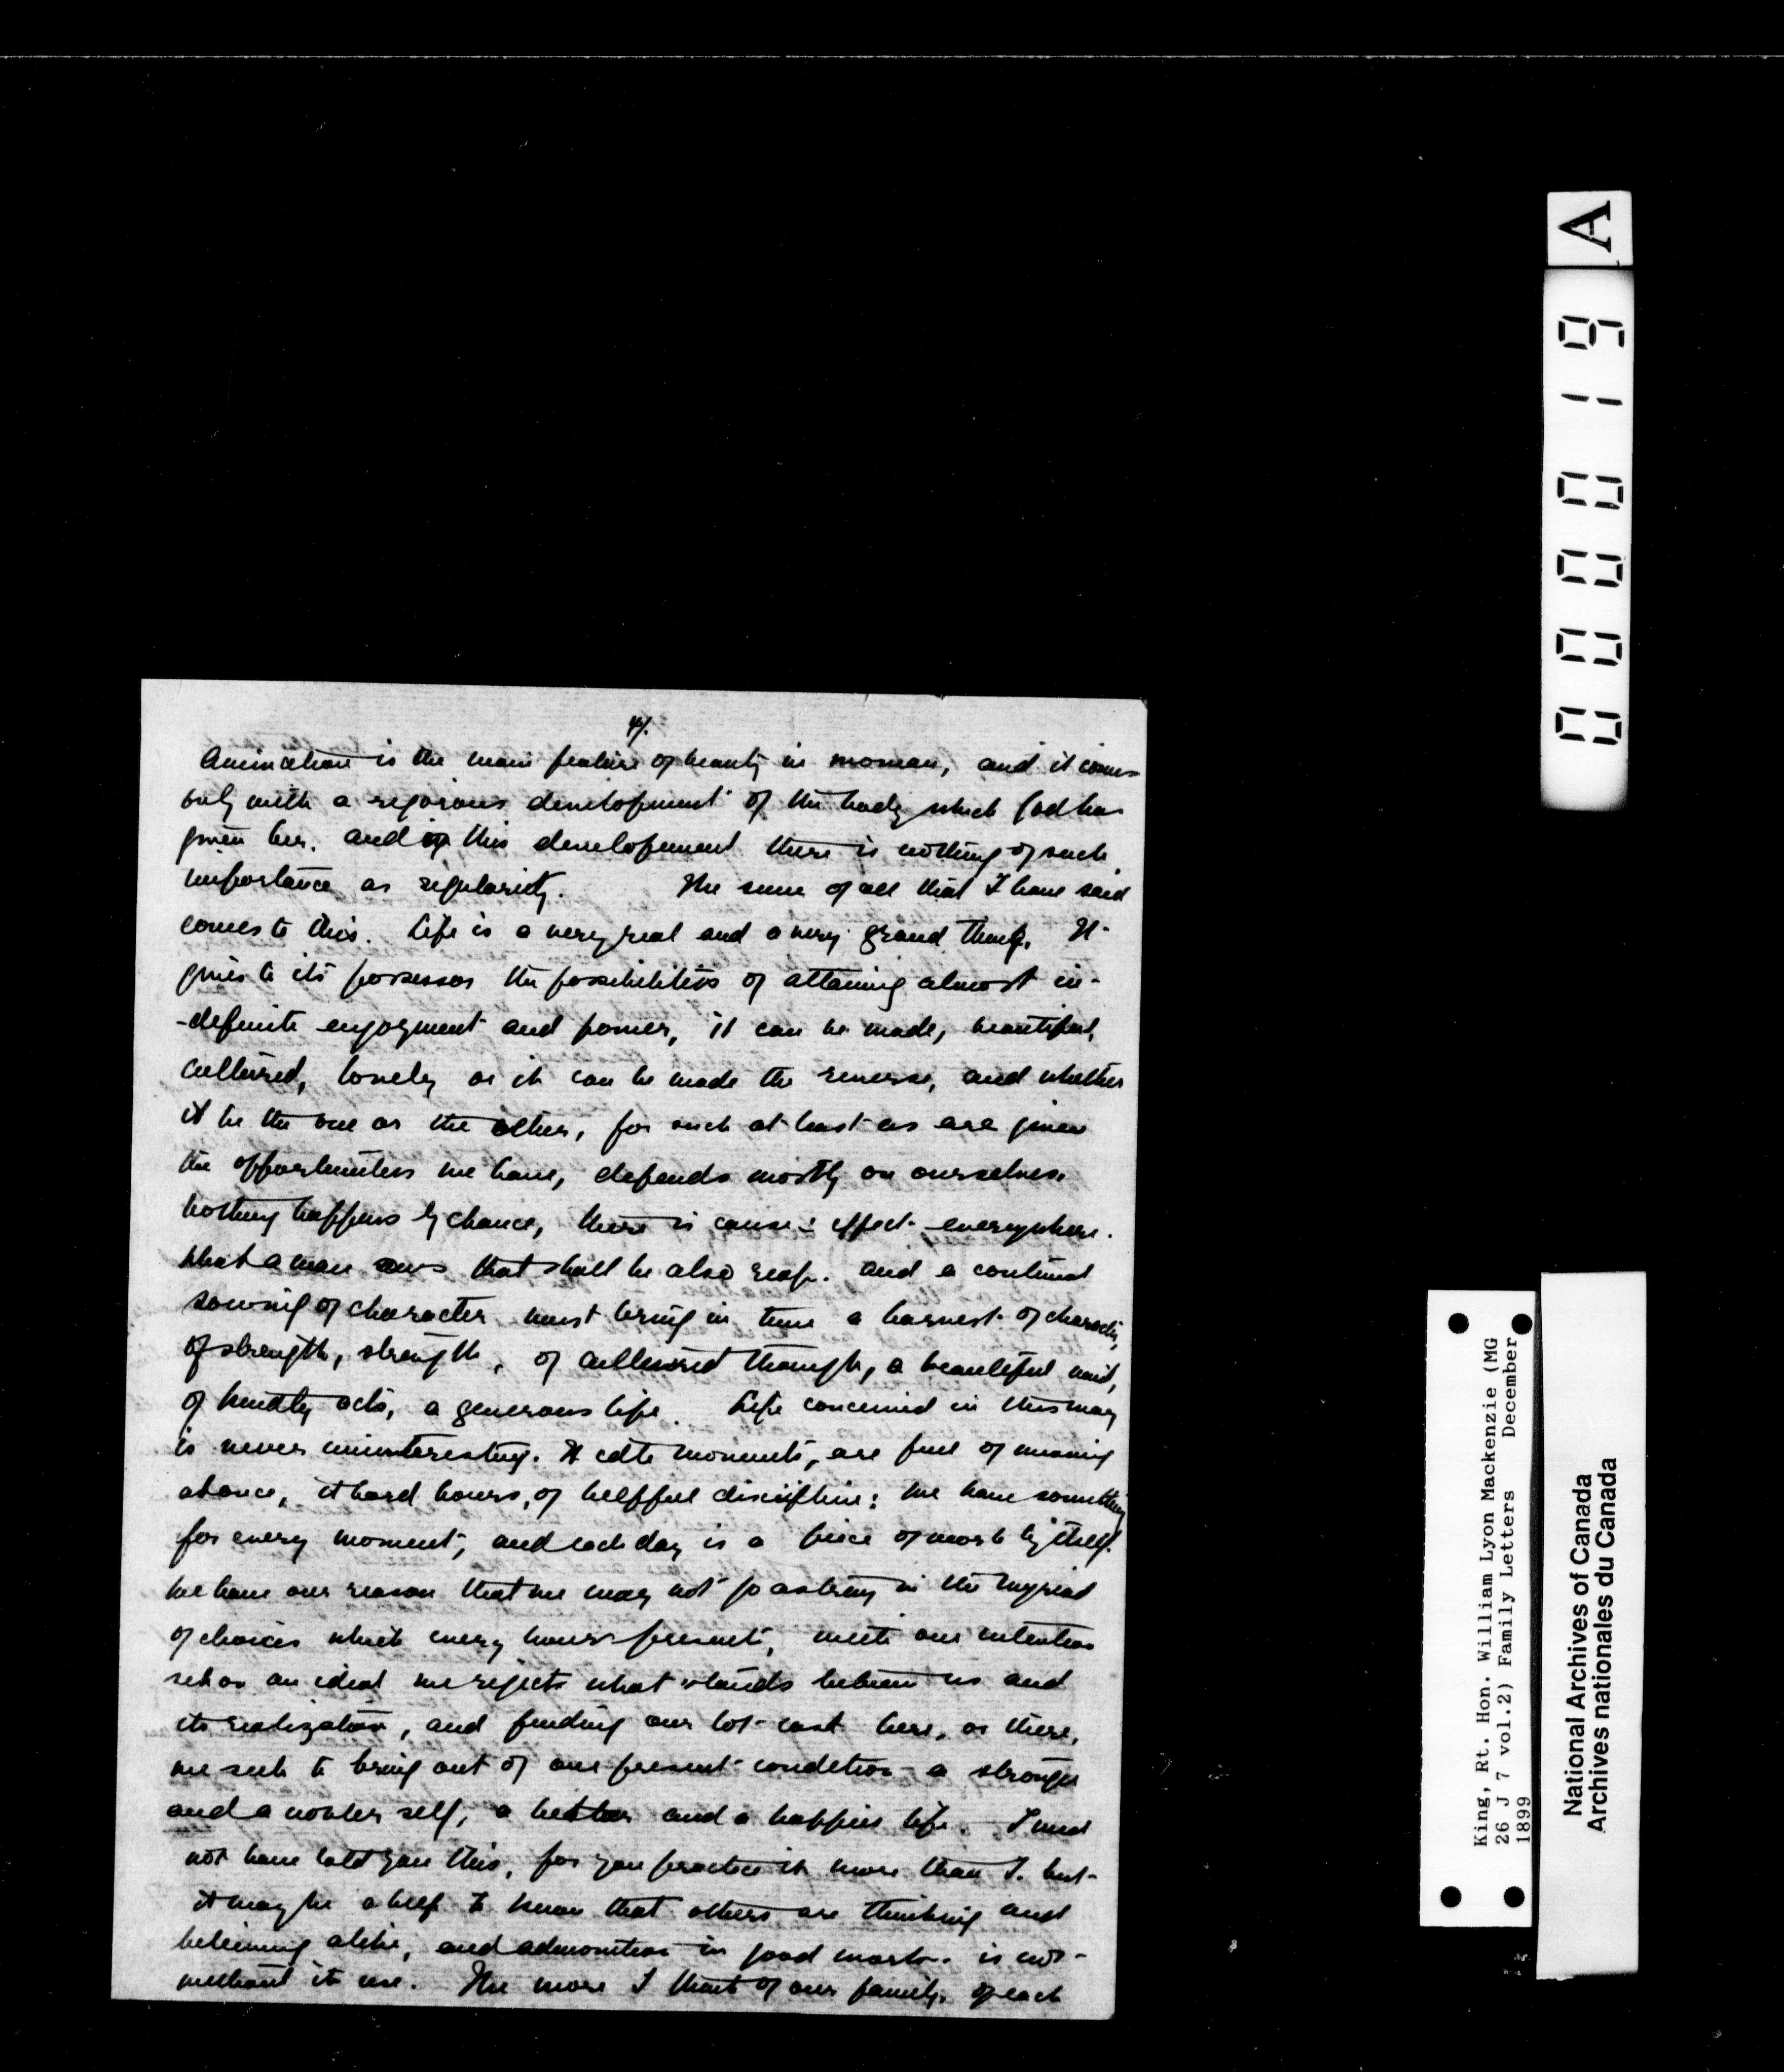 4/.
Animation is the main feature of beauty in woman, and it comes
only with a rigorous development of the body which God has
given her. and in this development there is nothing of such
importance as regularity. The sum of all that I have said
comes to this. Life is a very real and a very grand thing. It
gives to its possessor the possibilities of attaining almost in-
-definite enjoyment and power, it can be made, beautiful,
cultured, lovely or it can be made the reverse, and whether
it be the one or the other, for such at least as are given
the opportunities we have, depends mostly on ourselves.
Nothing happens by chance, there is cause & effect everywhere.
What a man sows that shall he also reap. and a continual
sowing of character must bring in time a harvest of character,
of strength, strength, of cultured thought, a beautiful mind,
of kindly acts, a generous life. Life conceived in this way
is never uninteresting. It moments, are full of meaning
at once, it hard hours, of helpful discipline; we have something
for every moment, and each day is a piece of work by itself.
We have our reason that we may not go astray in the myriad
of choices which every hour presents, with our intention
set on an ideal we reject what stands between us and
its realization, and finding our lot cast here, or there,
we seek to bring out of our present condition a stronger
and a nobler self, a better and a happier life. I need
not have told you this, for you practice it more than I. but
it may be a help to know that others are thinking and
believing alike, and admonition in good works is not
without its use. The more I think of our family, of each
A
0000019
King, Rt. Hon. William Lyon Mackenzie (MG
26 J 7 vol.2) Family Letters December
1899
National Archives of Canada
Archives nationales du Canada